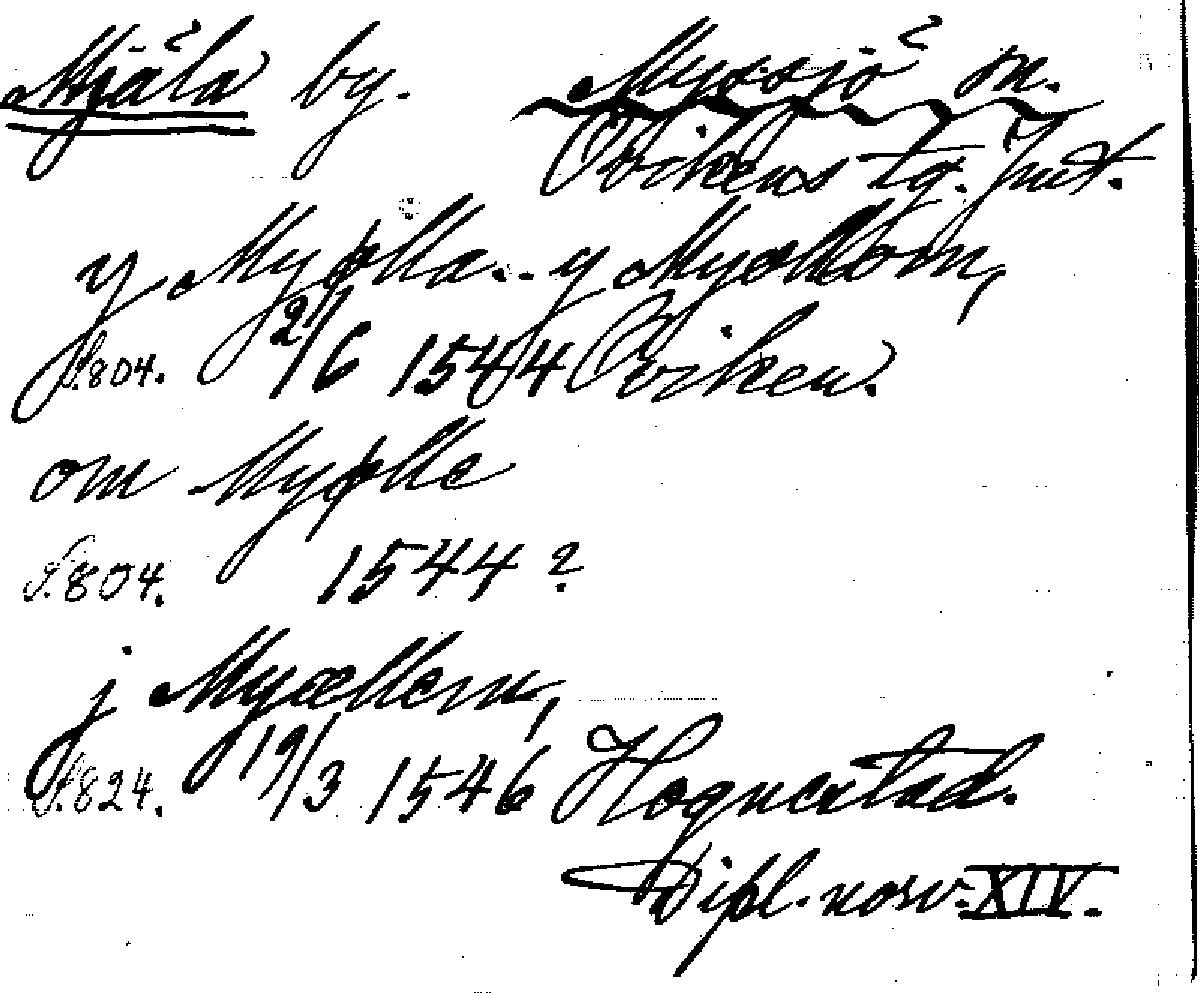 Mjäla by. Myssjö sn.
Ovikens tg. Jmt.
y Myølla.. y Myøllom,
S.804. 21/6 1544 Oviken.
om Myølle
S.804. 1544?
j Myællem,
S.824. 19/3 1546 Hognestad.
Dipl. norv. XIV.